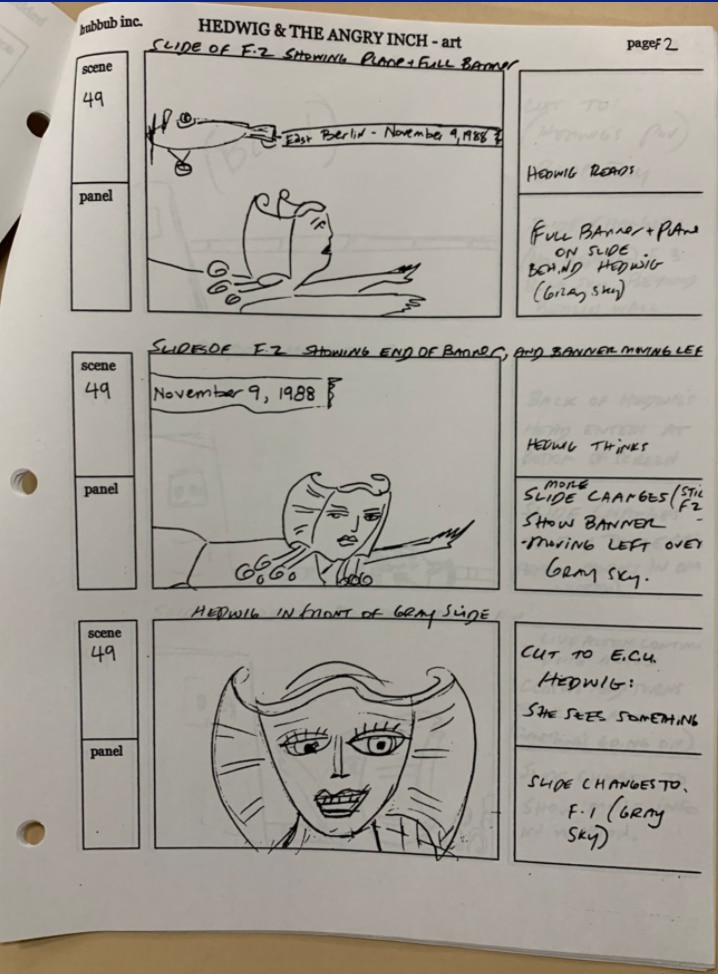 hubbub inc.
HEDWIG & THE ANGRY INCH - art
page F2
SLIDE OF F-2 SHOWING PLANE + FULL BANNER
scene
49
panel
East Berlin - November 9, 1988
HEDWIG READS
FULL BANNER + PLANE
ON SLIDE.
BEHIND HEDWIG
(GRAY SKY)
SLIDES OF F-2 SHOWING END OF BANNER, AND BANNER MOVING LEF
scene
49
panel
November 9, 1988
HEDWIG THINKS
MORE
SLIDE CHANGES (STIL
F2
SHOW BANNER
-MOVING LEFT OVER
GRAY SKY.
HEDWIG IN FRONT OF GRAY SLIDE
scene
49
panel
CUT TO E.C.U.
HEDWIG:
SHE SEES SOMETHING
SLIDE CHANGES TO.
F-1 (GRAY
SKY)